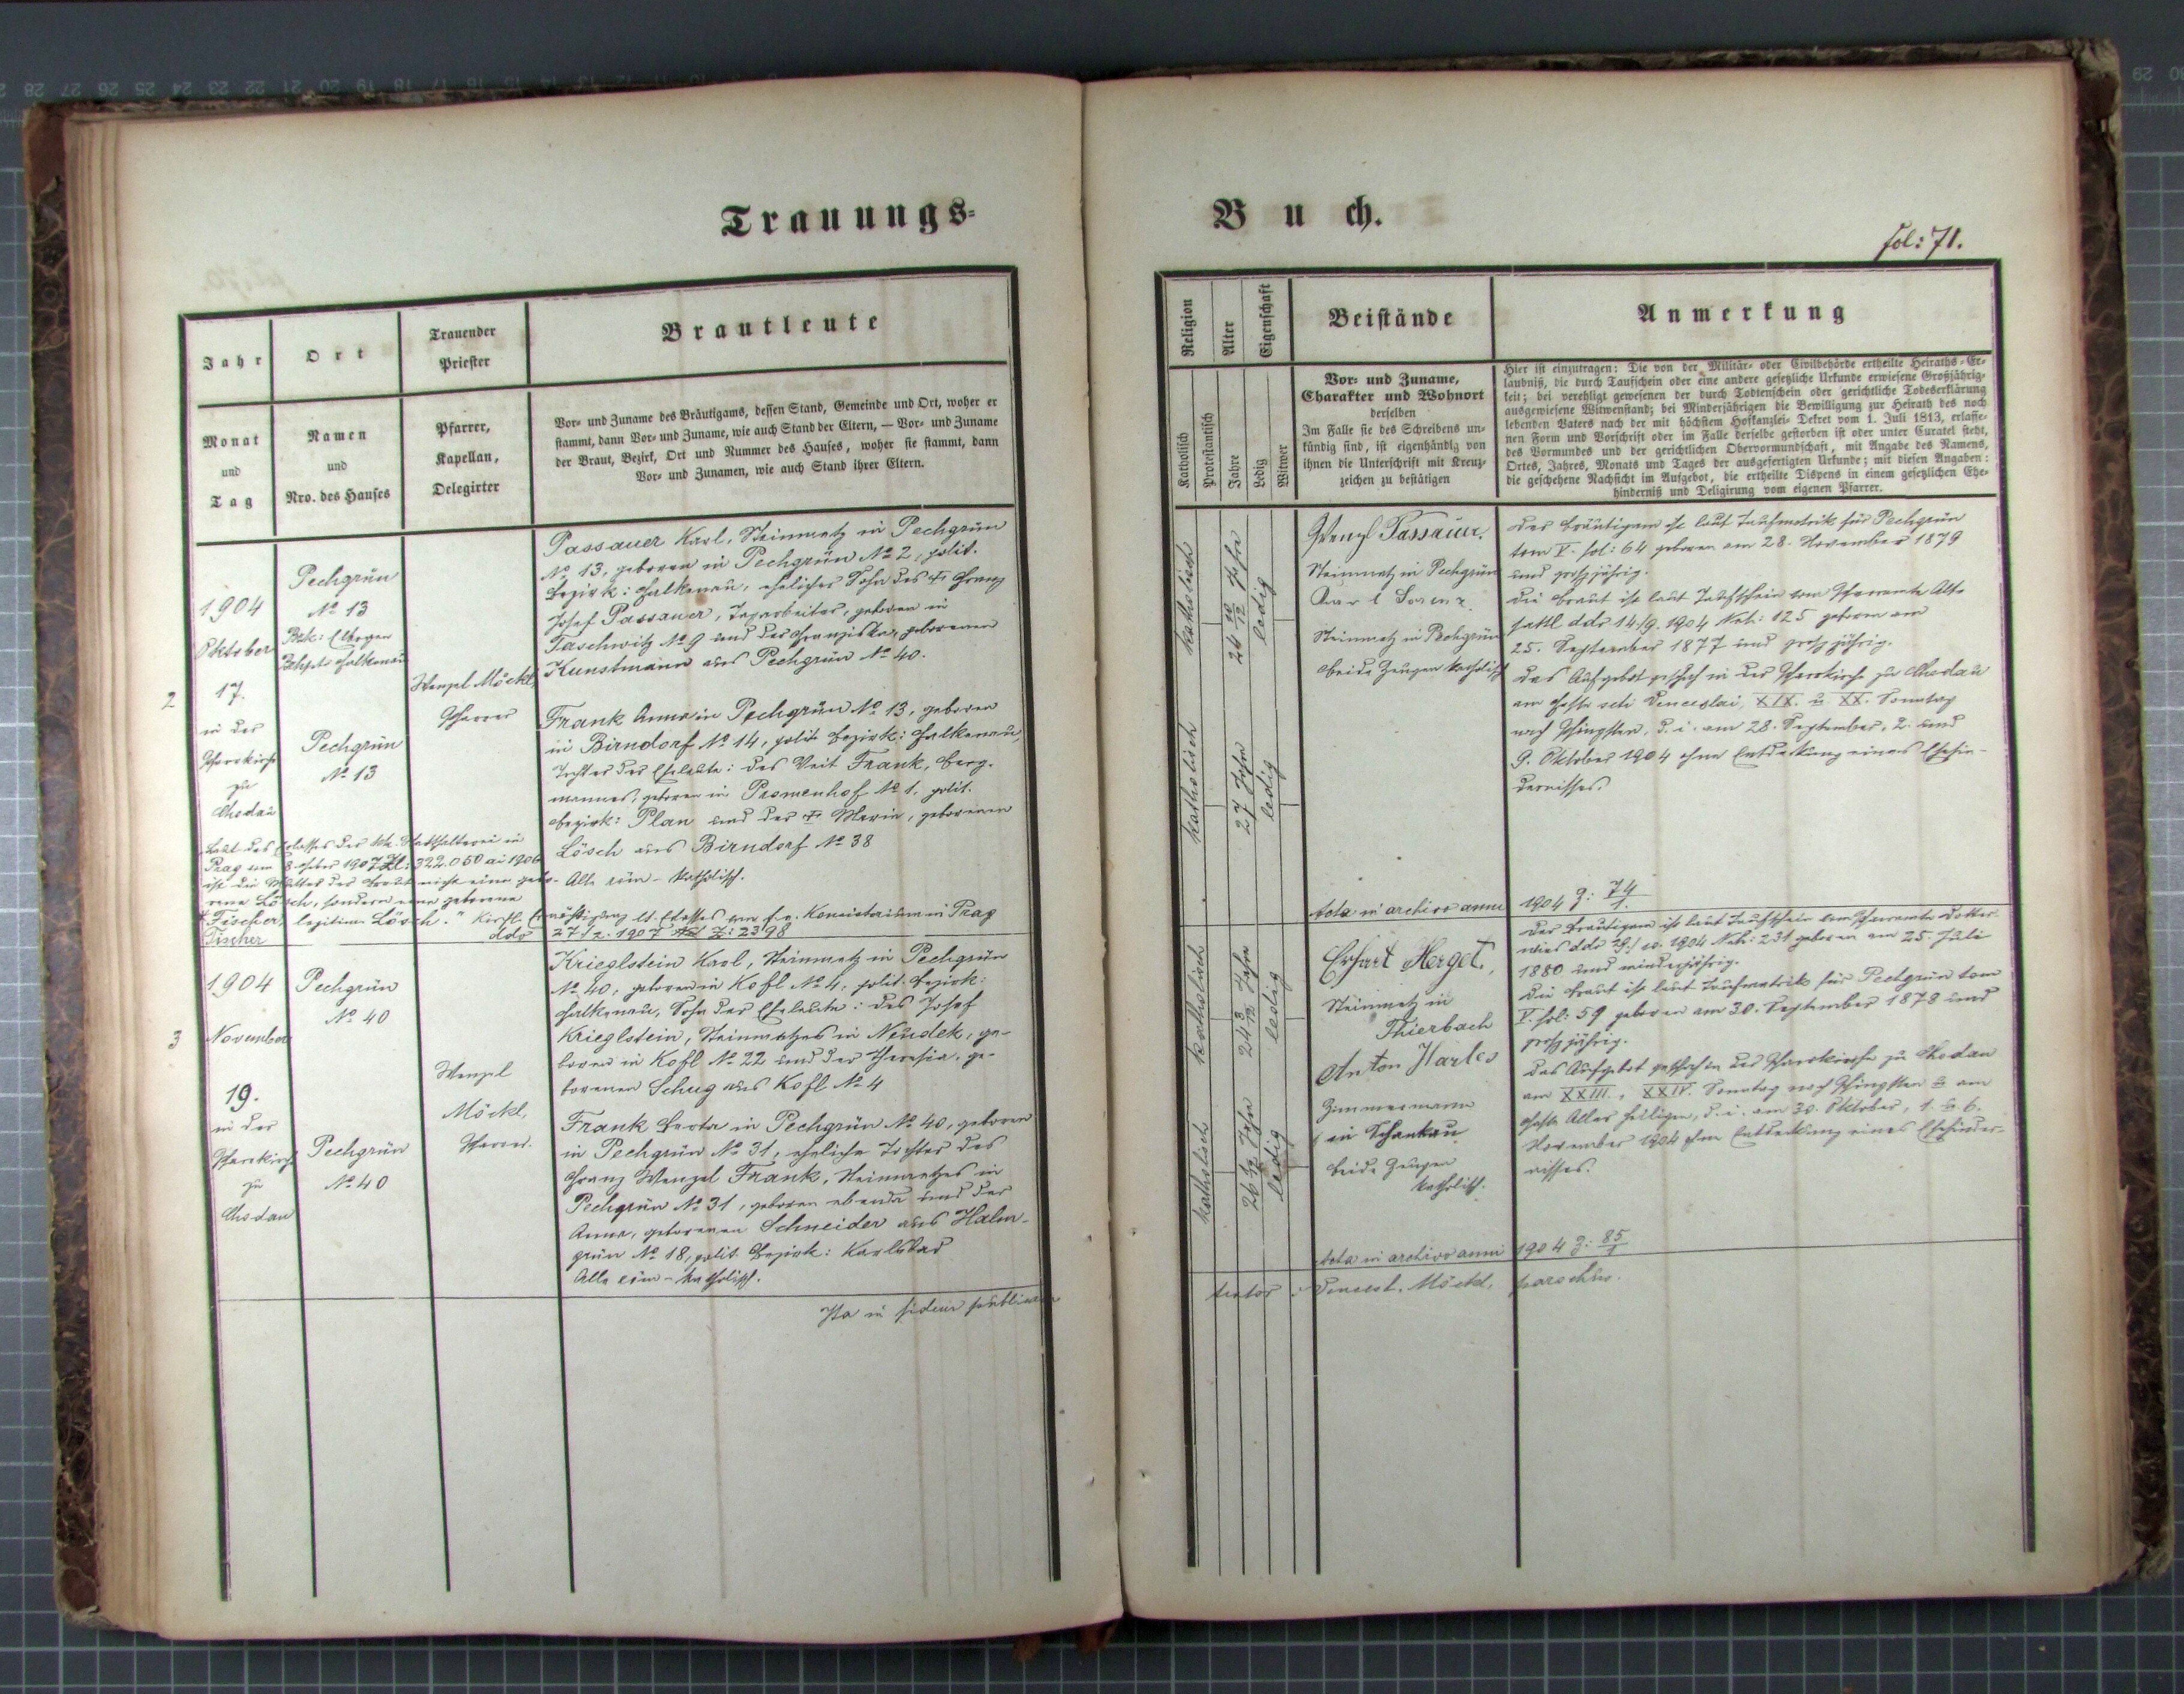 Trauungs-
Jahr
Ort
Trauender
Priester
Brautleute
Monat
und
Tag
Namen
und
Nro. des Hauses
Pfarrer,
Kapellan,
Delegirter
Vor- und Zuname des Bräutigams, dessen Stand, Gemeinde und Ort, woher er
stammt, dann Vor- und Zuname, wie auch Stand der Eltern, — Vor- und Zuname
der Braut, Bezirk, Ort und Nummer des Hauses, woher sie stammt, dann
Vor- und Zunamen, wie auch Stand ihrer Eltern.
2
1904
Oktober
17.
in der
Pfarrkirche
zu
Chodau
Pechgrün
No 13
Bzk: Elbogen
Falkenau
Pechgrün
No 13
Wenzel Möckl,
Pfarrer
Passauer Karl, Steinmetz in Pechgrün
No 13, geboren in Pechgrün No 2, polit.
Bezirk: Falkenau, ehelicher Sohn des † Franz
Josef Passauer, Tagarbeiter, geboren in
Taschwitz No 9 und der Franziska, geborenen
Kunstmann aus Pechgrün No 40.
Frank Anna in Pechgrün No 13, geboren
in Birndorf No 14, polit. Bezirk: Falkenau,
Tochter der Eheleute: des Veit Frank, Berg-
mannes, geboren in Promenhof No 1, polit.
Bezirk: Plan und der † Maria, geborenen
Lösch aus Birndorf No 38
Alle röm-katholisch.
Laut des Erlasses der kk. Statthalterei in
Prag vom 8. 1907 Zl: 322.050 ai 1906
ist die Mutter der Braut nicht eine gebo-
rene Lösch, sondern eine geborene
Fischer, legitim. Lösch." Kirchl. Ermächtigung lt. Erlasses vom f. e. Konsistorium in Prag
Fischer ddo 27/2. 1907 Z: 2398
3
1904
November
19.
in der
Pfarrkirche
zu
Chodau
Pechgrün
No 40
Pechgrün
No 40
Wenzel
Möckl,
Pfarrer.
Krieglstein Karl, Steinmetz in Pechgrün
No 40, geboren in Kofl No 4, polit. Bezirk:
Falkenau, Sohn der Eheleute: des Josef
Krieglstein, Steinmetzes in Neudek, ge-
boren in Kofl No 22 und der Theresia, ge-
borenen Schug aus Kofl No 4
Frank Berta in Pechgrün No 40, geboren
in Pechgrün No 31, eheliche Tochter des
Franz Wenzel Frank, Steinmetzes in
Pechgrün No 31, geboren ebenda und der
Anna, geborenen Schneider aus Halm-
grün No 18, polit. Bezirk: Karlsbad
Alle röm-katholisch.
Ita in fidem publicam
Buch.
fol: 71.
Religion
Alter
Eigenschaft
Beistände
Anmerkung
Katholisch
Protestantisch
Jahre
Ledig
Witwer
Vor- und Zuname,
Charakter und Wohnort
derselben
Im Falle sie des Schreibens un-
kündig sind, ist eigenhändig von
ihnen die Unterschrift mit Kreuz-
zeichen zu bestätigen
Hier ist einzutragen: Die von der Militär- oder Civilbehörde ertheilte Heiraths-Er-
laubniß, die durch Taufschein oder eine andere gesetzliche Urkunde erwiesene Großjährig-
keit; bei verehligt gewesenen der durch Todtenschein oder gerichtliche Todeserklärung
ausgewiesene Witwenstand; bei Minderjährigen die Bewilligung zur Heirath des noch
lebenden Vaters nach der mit höchstem Hofkanzlei-Dekret vom 1. Juli 1813, erlasse-
nen Form und Vorschrift oder im Falle derselbe gestorben ist oder unter Curatel steht,
des Vormundes und der gerichtlichen Obervormundschaft, mit Angabe des Namens,
Ortes, Jahres, Monats und Tages der ausgefertigten Urkunde; mit diesen Angaben:
die geschehene Nachsicht im Aufgebot, die ertheilte Dispens in einem gesetzlichen Ehe-
hinderniß und Deligirung vom eigenen Pfarrer.
katholisch
24 10/12 Jahre
ledig
katholisch
27 Jahre
ledig
Wenzl Passauer.
Steinmetz in Pechgrün
Karl Lorenz
Steinmetz in Pechgrün
beide Zeugen katholisch
Der Bräutigam ist laut Taufmatrik für Pechgrün
tom V. fol: 64 geboren am 28. November 1879
und großjährig.
Die Braut ist laut Taufschein vom Pfarramte Alt-
sattl ddo 14./9. 1904 Nah: 125 geboren am
25. September 1877 und großjährig.
Das Aufgebot geschah in der Pfarrkirche zu Chodau
am Feste scti Venceslai, XIX. u XX. Sonntag
nach Pfingsten, d. i. am 28. September, 2. und
9. Oktober 1904 ohne Entdeckung eines Ehehin-
dernisses.
Acta in archivo anni 1904 Z: 74/1.
katholisch
24 3/12 Jahre
ledig
katholisch
26 Jahre
ledig
Erhart Herget,
Steinmetz in
Thierbach
Anton Harles
Zimmermann
in Schankau
beide Zeugen
katholisch.
Der Bräutigam ist laut Taufschein vom Pfarramte Dotter-
wies ddo 29./10. 1904 Nah: 231 geboren am 25. Juli
1880 und minderjährig.
Die Braut ist laut Taufmatrik für Pechgrün tom
V. fol: 59 geboren am 30. September 1878 und
großjährig.
Das Aufgebot geschah in der Pfarrkirche zu Chodau
am XXIII., XXIV. Sonntag nach Pfingsten u am
Feste Aller Heiligen, d. i. am 30. Oktober, 1. u 6.
November 1904 ohne Entdeckung eines Ehehinder-
nisses.
Acta in archivo anni 1904 Z: 85/1
testor: Vencesl. Möckl, parochus.